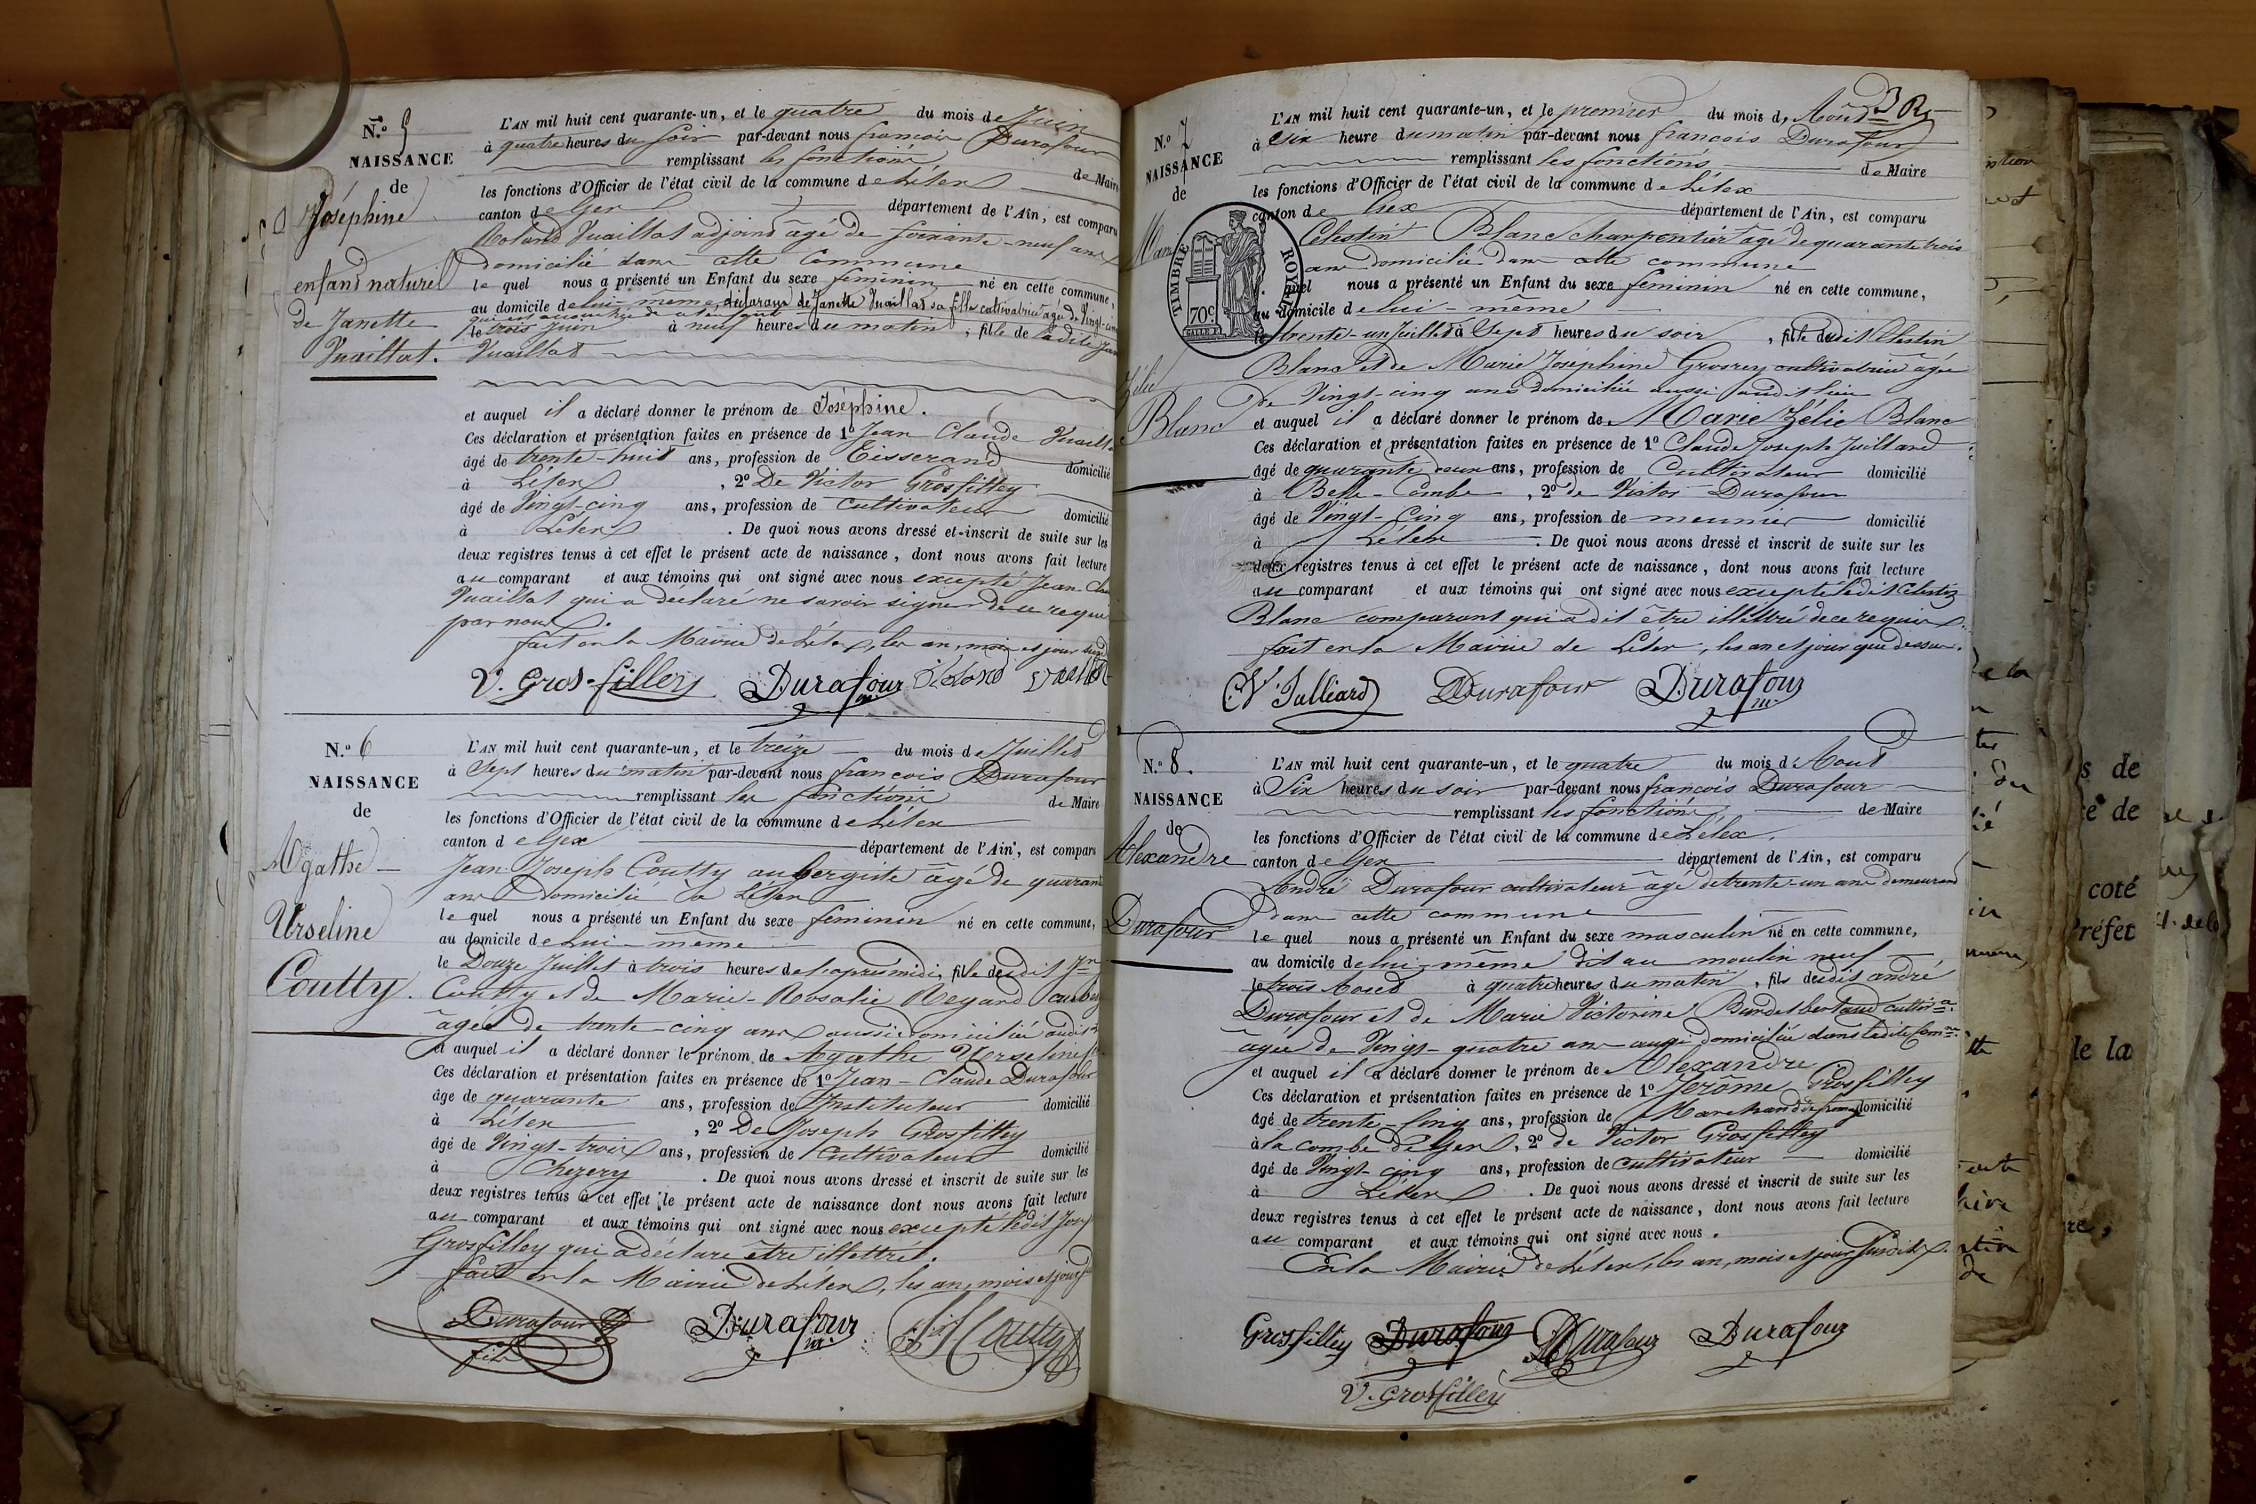 N.º 5
NAISSANCE
de
Joséphine
enfant naturel
de Janette
Vuaillat.
L'AN mil huit cent quarante-un, et le quatre du mois de Juin
à quatre heures du soir par-devant nous françois Durafour
remplissant les fonctions de Maire
les fonctions d'Officier de l'état civil de la commune de Lélex
canton de Gex département de l'Ain, est comparu
Roland Vuaillat adjoint âgé de soixante-neuf ans
domicilié dans cette Commune
le quel nous a présenté un Enfant du sexe féminin né en cette commune,
au domicile de lui-même, déclarant de Janette Vuaillat sa fille cultivatrice âgé de Vingt-cinq
qui est accouchée
le trois Juin à neuf heures du matin, fille de la dite
Vuaillat
et auquel il a déclaré donner le prénom de Joséphine.
Ces déclaration et présentation faites en présence de 1º Jean Claude Vuaillat
âgé de trente-huit ans, profession de Tisserand domicilié
à Lélex, 2º De Victor Grosfilley
âgé de Vingt-cinq ans, profession de cultivateur domicilié
à Lélex. De quoi nous avons dressé et inscrit de suite sur les
deux registres tenus à cet effet le présent acte de naissance, dont nous avons fait lecture
au comparant et aux témoins qui ont signé avec nous excepté Jean
Vuaillat qui a déclaré ne savoir signer de ce requis
par nous.
fait en la Mairie de Lélex, les an, mois et jour
V. Gros-filley Durafour Roland Vuaillat
N.º 6
NAISSANCE
de
Agathe
Urseline
Coutty.
L'AN mil huit cent quarante-un, et le treize du mois de Juillet
à Sept heures du matin par-devant nous françois Durafour
remplissant les fonctions de Maire
les fonctions d'Officier de l'état civil de la commune de Lélex
canton de Gex département de l'Ain, est comparu
Jean Joseph Coutty aubergiste âgé de quarante
ans Domicilié à Lélex
le quel nous a présenté un Enfant du sexe féminin né en cette commune,
au domicile de Lui-même
le Douze Juillet à trois heures de l'après midi, fille dudit Jn
Coutty et de Marie-Rosalie Regard
âgée de trente-cinq ans aussi domiciliée audit
et auquel il a déclaré donner le prénom de Agathe Urseline
Ces déclaration et présentation faites en présence de 1º Jean-Claude Durafour
âgé de quarante ans, profession de Instituteur domicilié
à Lélex, 2º De Joseph Grosfilley
âgé de Vingt-trois ans, profession de Cultivateur domicilié
à Chezery. De quoi nous avons dressé et inscrit de suite sur les
deux registres tenus à cet effet le présent acte de naissance dont nous avons fait lecture
au comparant et aux témoins qui ont signé avec nous excepté ledit
Grosfilley qui a déclaré être illettré.
fait en la Mairie de Lélex, les an, mois et jour
Durafour Durafour Coutty
N.º 7
NAISSANCE
de
Marie
Zélie
Blanc
TIMBRE ROYAL
70c
L'AN mil huit cent quarante-un, et le premier du mois d'Août
à Six heure du matin par-devant nous françois Durafour
remplissant les fonctions de Maire
les fonctions d'Officier de l'état civil de la commune de Lélex
canton de Gex département de l'Ain, est comparu
Célestin Blanc charpentier âgé de quarante trois
ans domicilié dans cette commune
quel nous a présenté un Enfant du sexe féminin né en cette commune,
au domicile de lui-même
le trente-un Juillet à Sept heures du soir, fille dudit Célestin
Blanc et de Marie Joséphine Grosrey cultivatrice âgée
de Vingt-cinq ans domiciliée aussi audit lieu
et auquel il a déclaré donner le prénom de Marie Zélie Blanc
Ces déclaration et présentation faites en présence de 1º Claude Joseph Juilland
âgé de quarante deux ans, profession de Cultivateur domicilié
à Belle-Combe, 2º de Victor Durafour
âgé de Vingt-Cinq ans, profession de meunier domicilié
à Lélex. De quoi nous avons dressé et inscrit de suite sur les
deux registres tenus à cet effet le présent acte de naissance, dont nous avons fait lecture
au comparant et aux témoins qui ont signé avec nous excepté ledit Célestin
Blanc comparant qui a dit être illettré de ce requis.
fait en la Mairie de Lélex, les an et jour que dessus.
Julliard Durafour Durafour
N.º 8.
NAISSANCE
de
Alexandre
Durafour
L'AN mil huit cent quarante-un, et le quatre du mois d'Aout
à Six heures du soir par-devant nous françois Durafour
remplissant les fonctions de Maire
les fonctions d'Officier de l'état civil de la commune de Lélex.
canton de Gex département de l'Ain, est comparu
André Durafour cultivateur âgé de trente-un ans demeurant
dans cette commune
le quel nous a présenté un Enfant du sexe masculin né en cette commune,
au domicile de lui-même dit au moulin neuf
le trois Aout à quatre heures du matin, fils dudit andré
Durafour et de Marie Victorine
âgée de Vingt-quatre ans aussi domiciliée dans ladite Comne.
et auquel il a déclaré donner le prénom de Alexandre
Ces déclaration et présentation faites en présence de 1º Jérôme Grosfilley
âgé de trente-cinq ans, profession de Marchand de fromage domicilié
à la combe de Gex, 2º de Victor Grosfilley
âgé de Vingt-cinq ans, profession de cultivateur domicilié
à Lélex. De quoi nous avons dressé et inscrit de suite sur les
deux registres tenus à cet effet le présent acte de naissance, dont nous avons fait lecture
au comparant et aux témoins qui ont signé avec nous.
En la Mairie de Lélex, les an, mois et jour susdits.
Grosfilley Durafour Durafour Durafour
V. Grosfilley
s de
coté
Préfet
de la